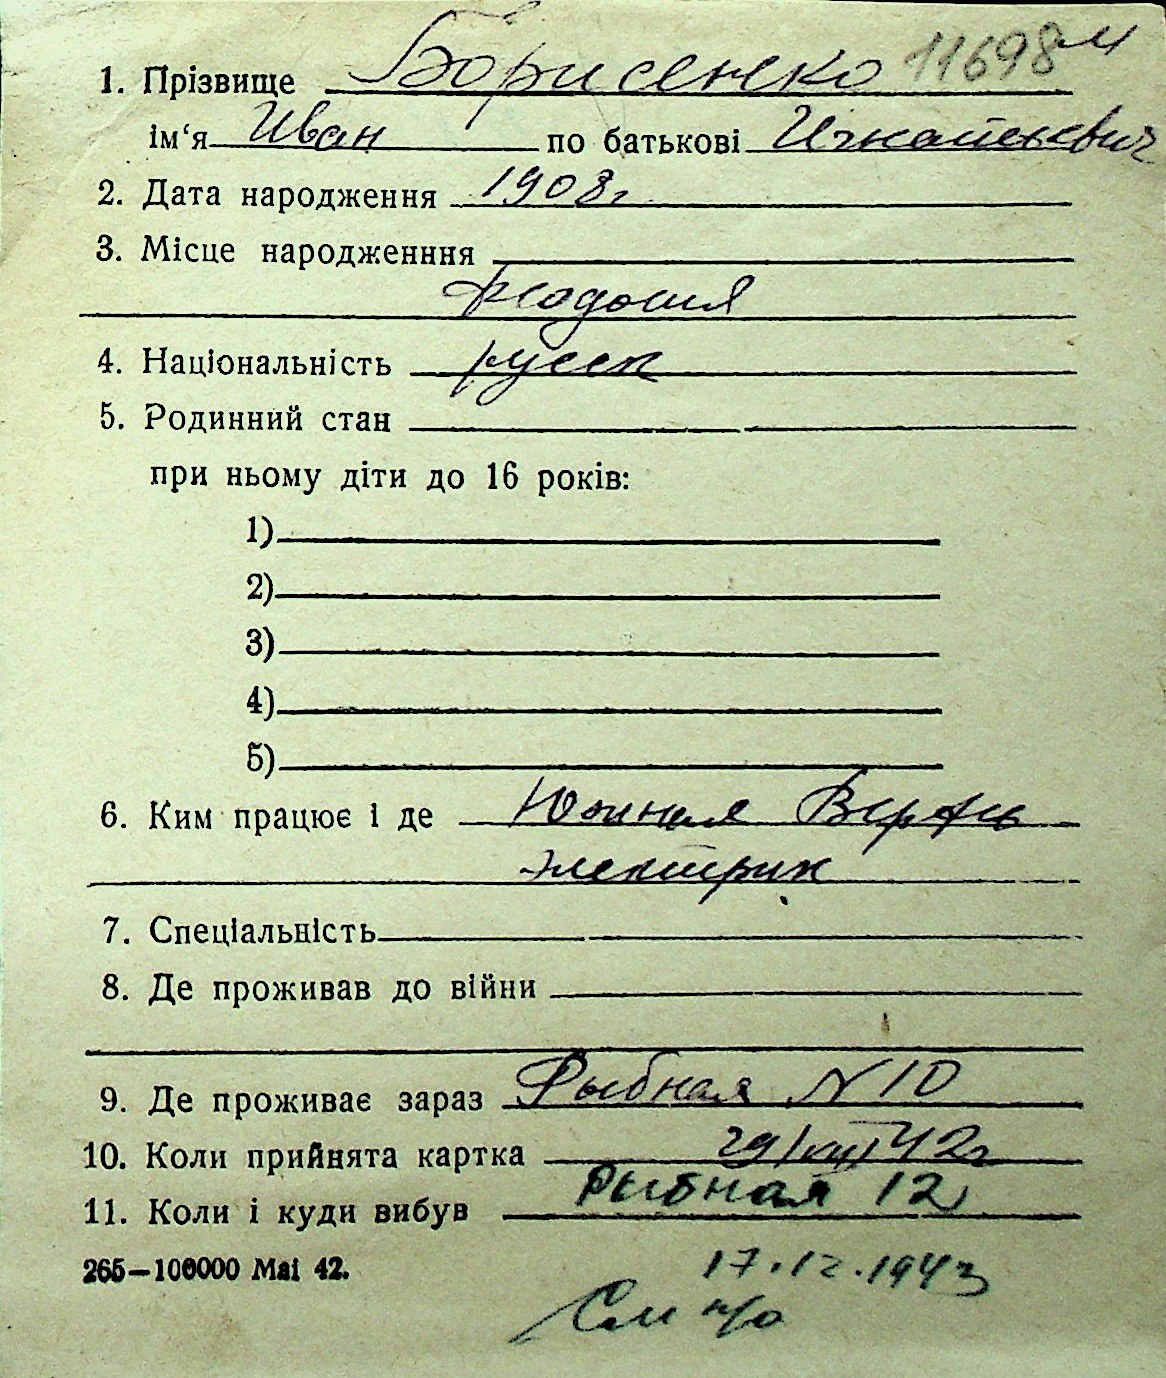 1. Прізвище Борисенко 11698 м
ім‘я Иван по батькові Игнатьевич
2. Дата народження 1908г
3. Місце народженння
Феодосия
4. Національність русск
5. Родинний стан
при ньому діти до 16 років:
1)
2)
3)
4)
5)
6. Ким працює і де Южная Верфь
электрик
7. Спеціальність
8. Де проживав до війни
9. Де проживає зараз Рыбная N 10
10. Коли прийнята картка 29/VIII 42г
Рыбная 12
11. Коли і куди вибув
265—100000 Маі 42. 17.12.1943
См н/о